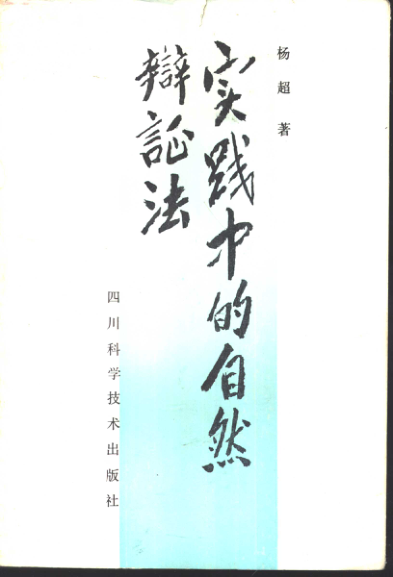 杨超著
实践中的自然
辩証法
四川科学技术出版社